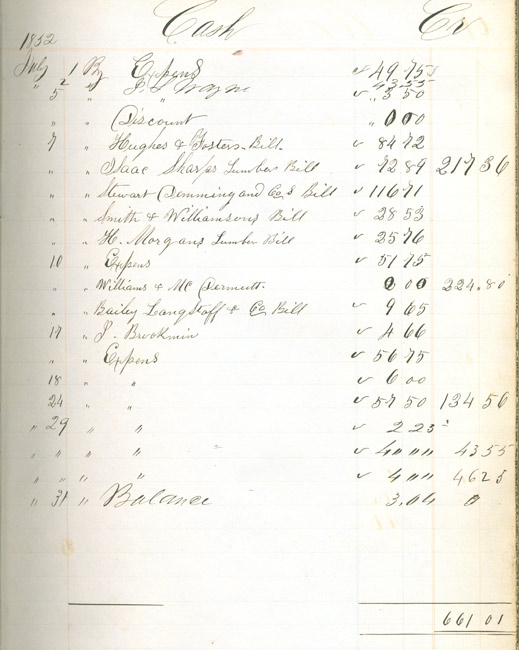 1852 Cash Cr
July 1 By Expens 49 75
" 2 " J
5 " " 3 50
" " Discount " 0 00
7 " Hughes & Fosters Bill. 84 72
" " Isaac Sharps Lumber Bill 72 89 217 36
" " Stewart Demming and Co s Bill 116 71
" " Smith & Williamsons Bill 28 53
" " H. Morgans Lumber Bill 25 76
10 " Expens 51 75
" " Williams & Mc Dermutt. 0 00 224.80
" " Bailey Langstaff & Co Bill 9 65
17 " J. Brookmin 4 66
" " Expens 56 75
18 " " 6 00
24 " " 57 50 134 56
" 29 " " 2 25
" " " " 4 " " 43 55
" " " " 4 " " 46 25
" 31 " Balance 3.04 0
661 01